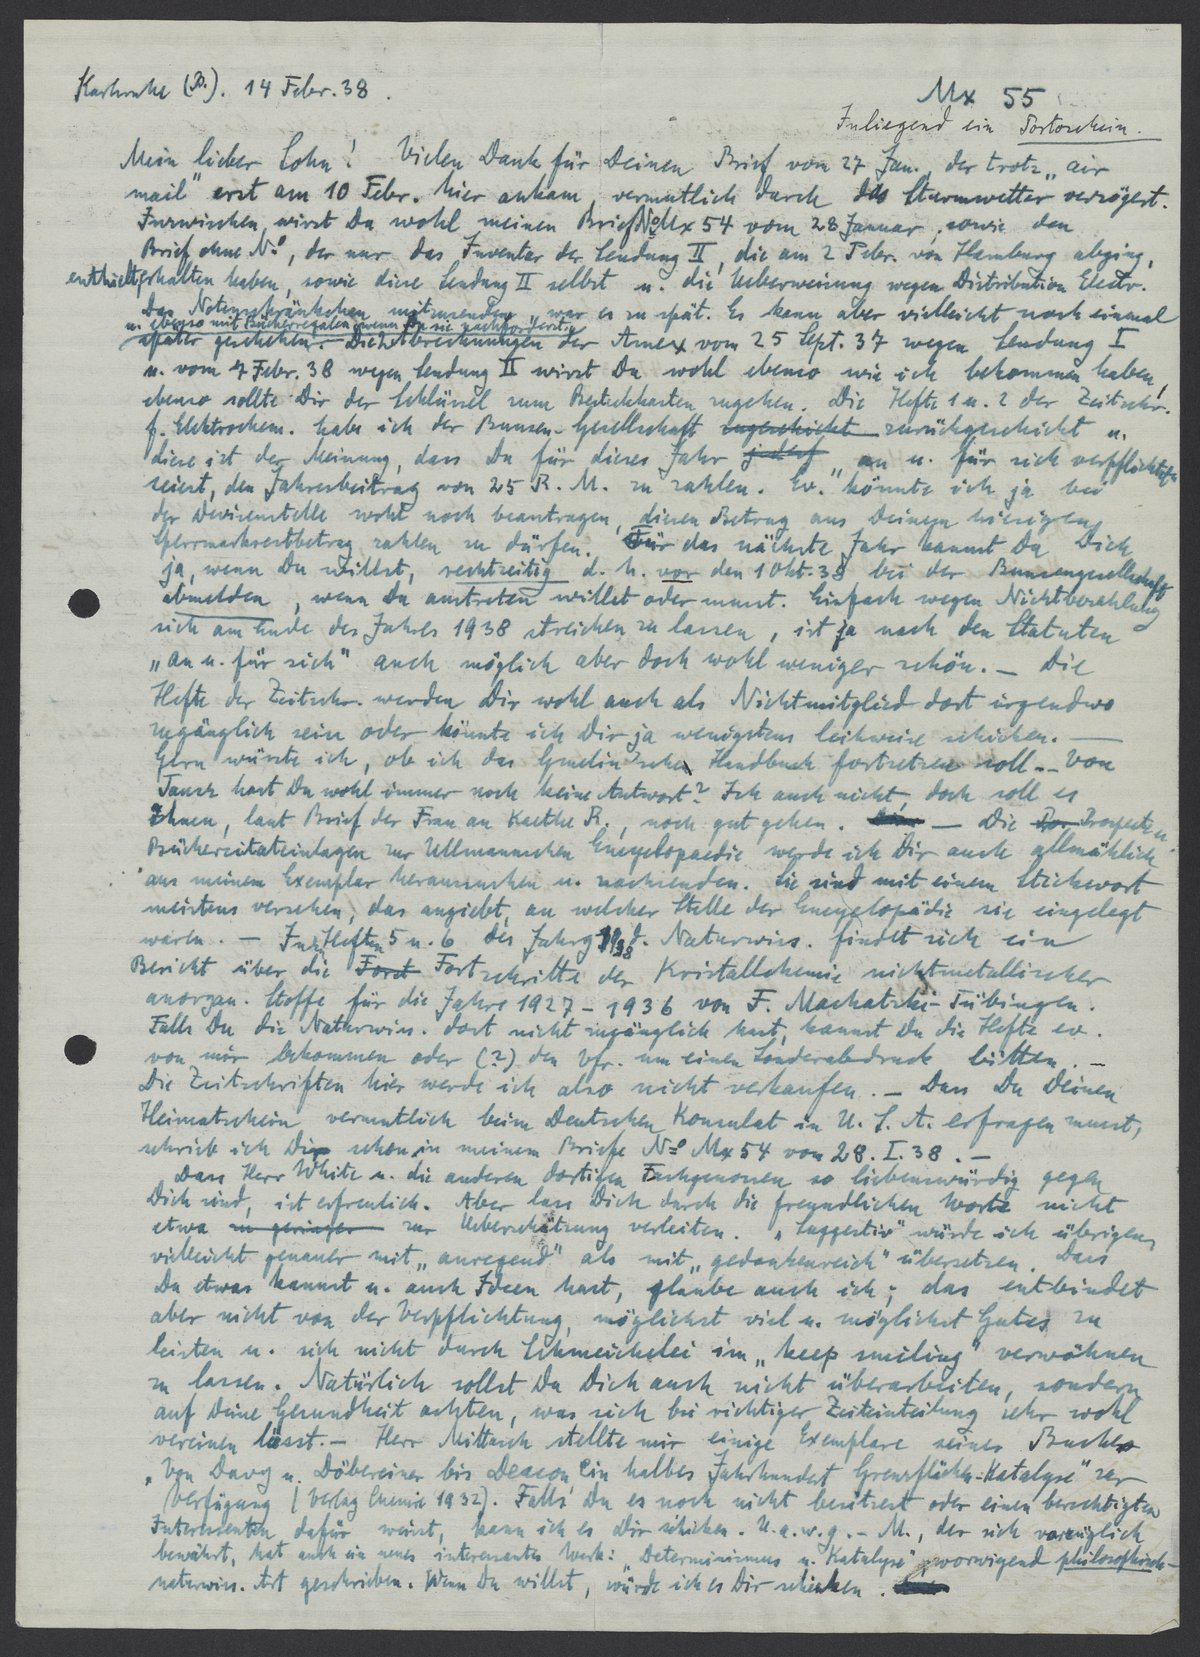 Karlsruhe (B.). 14 Febr. 38.
Mx 55
Inliegend ein Portoschein.
Mein lieber Sohn! Vielen Dank für Deinen Brief vom 27 Jan. der trotz „air
mail" erst am 10 Febr. hier ankam, vermutlich durch das Sturmwetter verzögert.
Inzwischen wirst Du wohl meinen Brief No Mx 54 vom 28 Januar, sowie den
Brief ohne No, der nur das Inventar der Sendung II, die am 2 Febr. von Hamburg abging,
enthielt, erhalten haben, sowie diese Sendung II selbst u. die Ueberweisung wegen Distribution Electr.
Das Notenschränkchen mitzusenden, war es zu spät. Es kann aber vielleicht noch einmal
u. ebenso mit Bücherregalen, wenn Du sie nachforderst
später geschehen. — Die Abrechnungen der Amex vom 25 Sept. 37 wegen Sendung I
u. vom 7 Febr. 38 wegen Sendung II wirst Du wohl ebenso wie ich bekommen haben,
ebenso sollte Dir der Schlüssel zum Besteckkasten zugehen. Die Hefte 1 u. 2 der Zeitschr.
f. Elektrochem. habe ich der Bunsen-Gesellschaft zugeschickt zurückgeschickt u.
diese ist der Meinung, dass Du für dieses Jahr „an u. für sich verpflichtet
seiest, den Jahresbeitrag von 25 R. M. zu zahlen. Ev." könnte ich ja bei
der Devisenstelle wohl noch beantragen, diesen Betrag aus Deinem hiesigen
Sperrmarkrestbetrag zahlen zu dürfen. Für das nächste Jahr kannst Du Dich
ja, wenn Du willst, rechtzeitig d. h. vor den 1 Okt. 38 bei der Bunsengesellschaft
abmelden, wenn Du austreten willst oder musst. Einfach wegen Nichtbezahlung
sich am Ende des Jahres 1938 streichen zu lassen, ist ja nach den Statuten
„an u. für sich" auch möglich aber doch wohl weniger schön. — Die
Hefte der Zeitschr. werden Dir wohl auch als Nichtmitglied dort irgendwo
zugänglich sein oder könnte ich Dir ja wenigstens leihweise schicken. —
Gern wüsste ich, ob ich das Gmelin'sche Handbuch fortsetzen soll. — Von
hast Du wohl immer noch keine Antwort? Ich auch nicht, doch soll es
Ihnen, laut Brief der Frau an Kaethe R., noch gut gehen. — Die Prospekte u.
Bücherzitateinlagen zur Ullmannschen Encyclopaedie werde ich Dir auch allmählich
aus meinem Exemplar heraussuchen u. nachsenden. Sie sind mit einem Stichwort
meistens versehen, das angiebt, an welcher Stelle der Encyclopädie sie eingelegt
waren. — In Heften 5 u. 6 des Jahrg 1938 d. Naturwiss. findet sich ein
Bericht über die Forst Fortschritte der Kristallchemie nichtmetallischer
anorgan. Stoffe für die Jahre 1927 – 1936 von F. Machatschki-Tübingen.
Falls Du die Naturwiss. dort nicht zugänglich hast, kannst Du die Hefte ev.
von mir bekommen oder (?) den Vfr. um einen Sonderabdruck bitten. —
Die Zeitschriften hier werde ich also nicht verkaufen. — Dass Du Deinen
Heimatschein vermutlich beim Deutschen Konsulat in U. S. A. erfragen musst,
schrieb ich Dir schon in meinem Briefe No Mx 54 vom 28. I. 38. —
Dass Herr White u. die anderen dortigen Fachgenossen so liebenswürdig gegen
Dich sind, ist erfreulich. Aber lass Dich durch die freundlichen Worte nicht
etwa zu geringer zur Ueberschätzung verleiten. „Suggestiv" würde ich übrigens
vielleicht genauer mit „anregend" als mit „gedankenreich" übersetzen. Dass
Du etwas kannst u. auch Ideen hast, glaube auch ich; das entbindet
aber nicht von der Verpflichtung, möglichst viel u. möglichst Gutes zu
leisten u. sich nicht durch Schmeichelei im „keep smiling" verwöhnen
zu lassen. Natürlich sollst Du Dich auch nicht überarbeiten, sondern
auf Deine Gesundheit achten, was sich bei richtiger Zeiteinteilung sehr wohl
vereinen lässt. — Herr Mittasch stellte mir einige Exemplare seines Buches
„Von Davy u. Döbereiner bis Deacon, ein halbes Jahrhundert Grenzflächen-Katalyse" zur
Verfügung (Verlag Chemie 1932). Falls Du es noch nicht besitzest oder einen berechtigten
Interessenten dafür weisst, kann ich es Dir schicken. U. a. w. g. — M., der sich vorzüglich
bewährt, hat auch ein neues interessantes Werk: „Determinismus u. Katalyse", vorwiegend philosophisch-
naturwiss. Art geschrieben. Wenn Du willst, würde ich es Dir schicken.